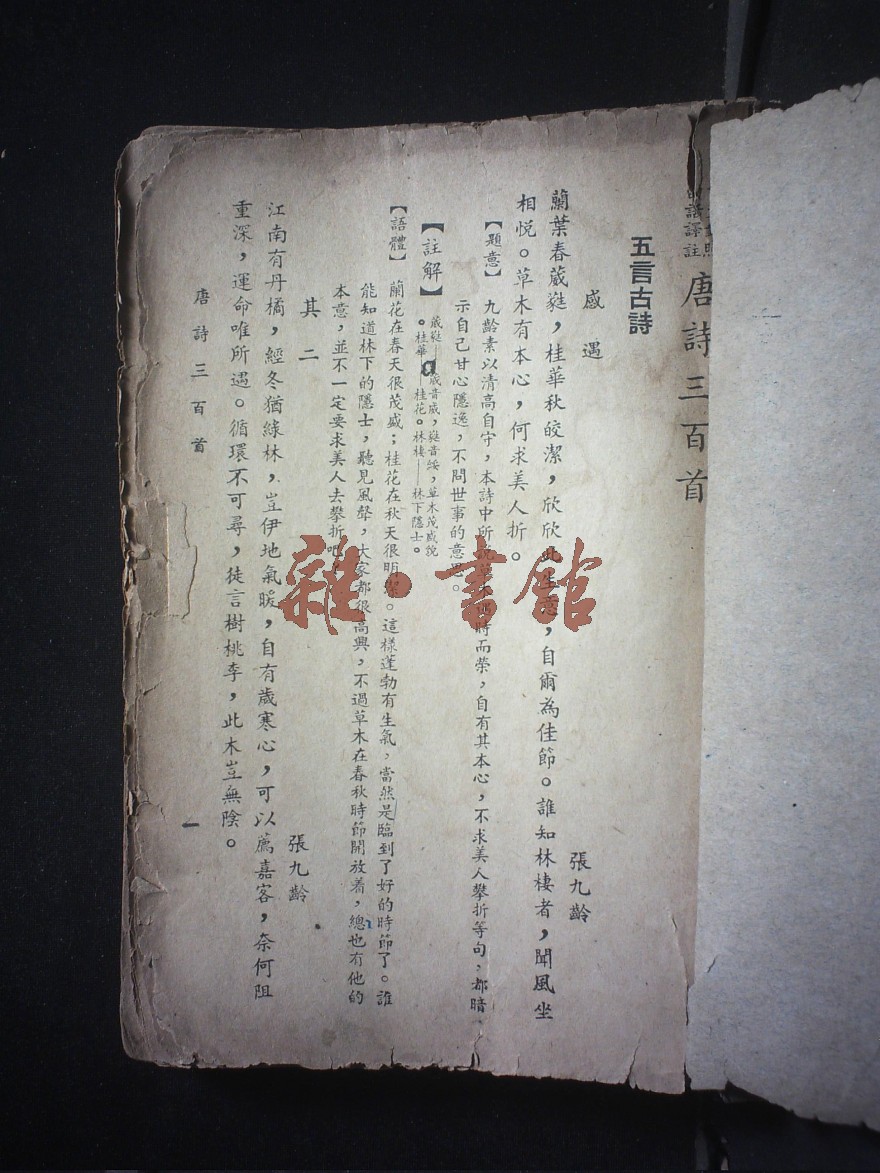 唐詩三百首
五言古詩
感遇
張九齡
蘭葉春葳蕤，桂華秋皎潔，欣欣此生意，自爾為佳節。誰知林棲者，聞風坐
相悅。草木有本心，何求美人折。
【題意】九齡素以清高自守，本詩中所說草木得時而榮，自有其本心，不求美人攀折等句，都暗
示自己甘心隱逸，不問世事的意思。
【註解】葳蕤——葳音威，蕤音綏，草木茂盛貌
。桂華——桂花。林棲——林下隱士。
【語體】蘭花在春天很茂盛；桂花在秋天很明潔。這樣蓬勃有生氣，當然是臨到了好的時節了。誰
能知道林下的隱士，聽見風聲，大家都很高興，不過草木在春秋時節開放着，總也有他的
本意，並不一定要求美人去攀折吧
其二
張九齡
江南有丹橘，經冬猶綠林，豈伊地氣暖，自有歲寒心，可以薦嘉客，奈何阻
重深，運命唯所遇。循環不可尋，徒言樹桃李，此木豈無陰。
唐詩三百首
一
雜·書館